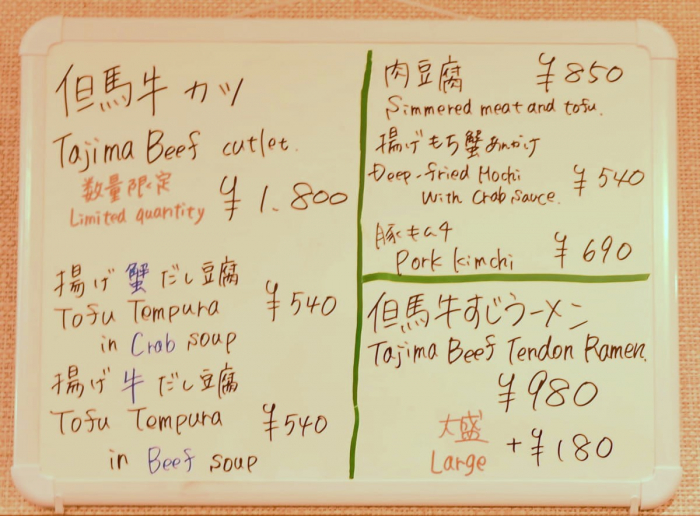 但馬牛カツ
Tajima Beef cutlet.
数量限定
Limited quantity
¥1.800
揚げ蟹だし豆腐
Tofu Tempura
in Crab soup
¥540
揚げ牛だし豆腐
Tofu Tempura
in Beef soup
¥540
肉豆腐 ¥850
Simmered meat and tofu.
揚げもち蟹あんかけ
Deep-fried Mochi
with Crab sauce.
¥540
豚キムチ
Pork kimchi
¥690
但馬牛すじラーメン
Tajima Beef Tendon Ramen.
¥980
大盛
Large
+¥180